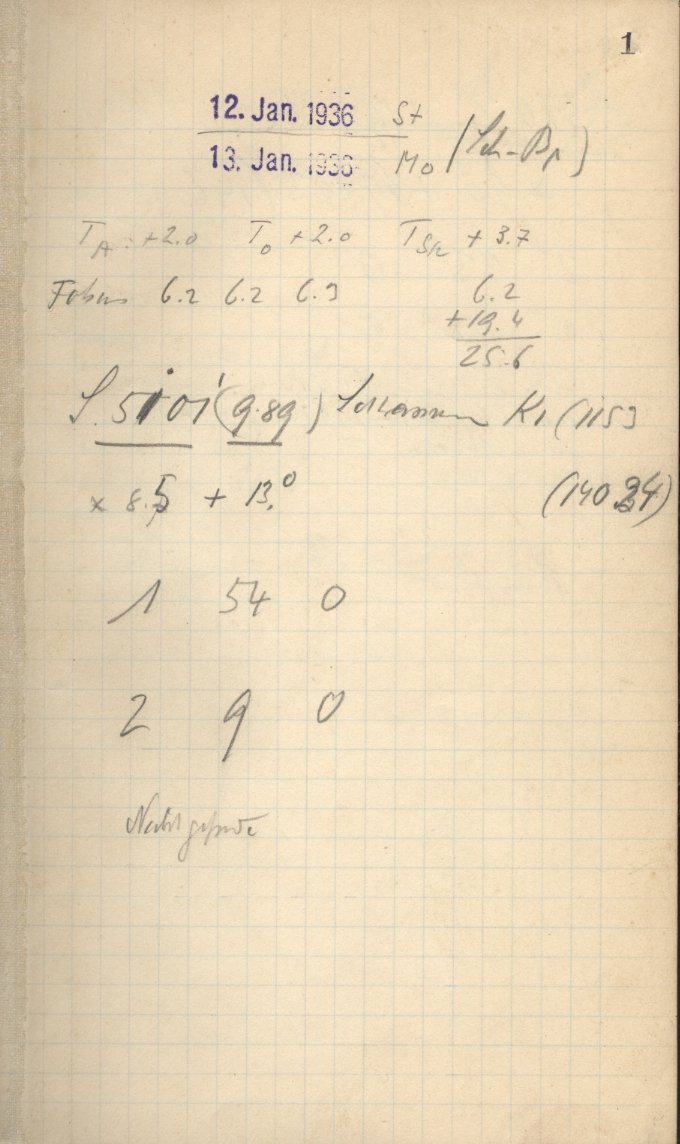 1
12. Jan. 1936 St
13. Jan. 1936 Mo
T A: +2.0 T o +2.0 T Sp + 3.7
Fokus 6.2 6.2 6.3 6.2
+19.4
25.6
S. 5101 (9.89) K1 (1153
x 8.5 + 13.0 (140 34)
1 54 0
2 9 0